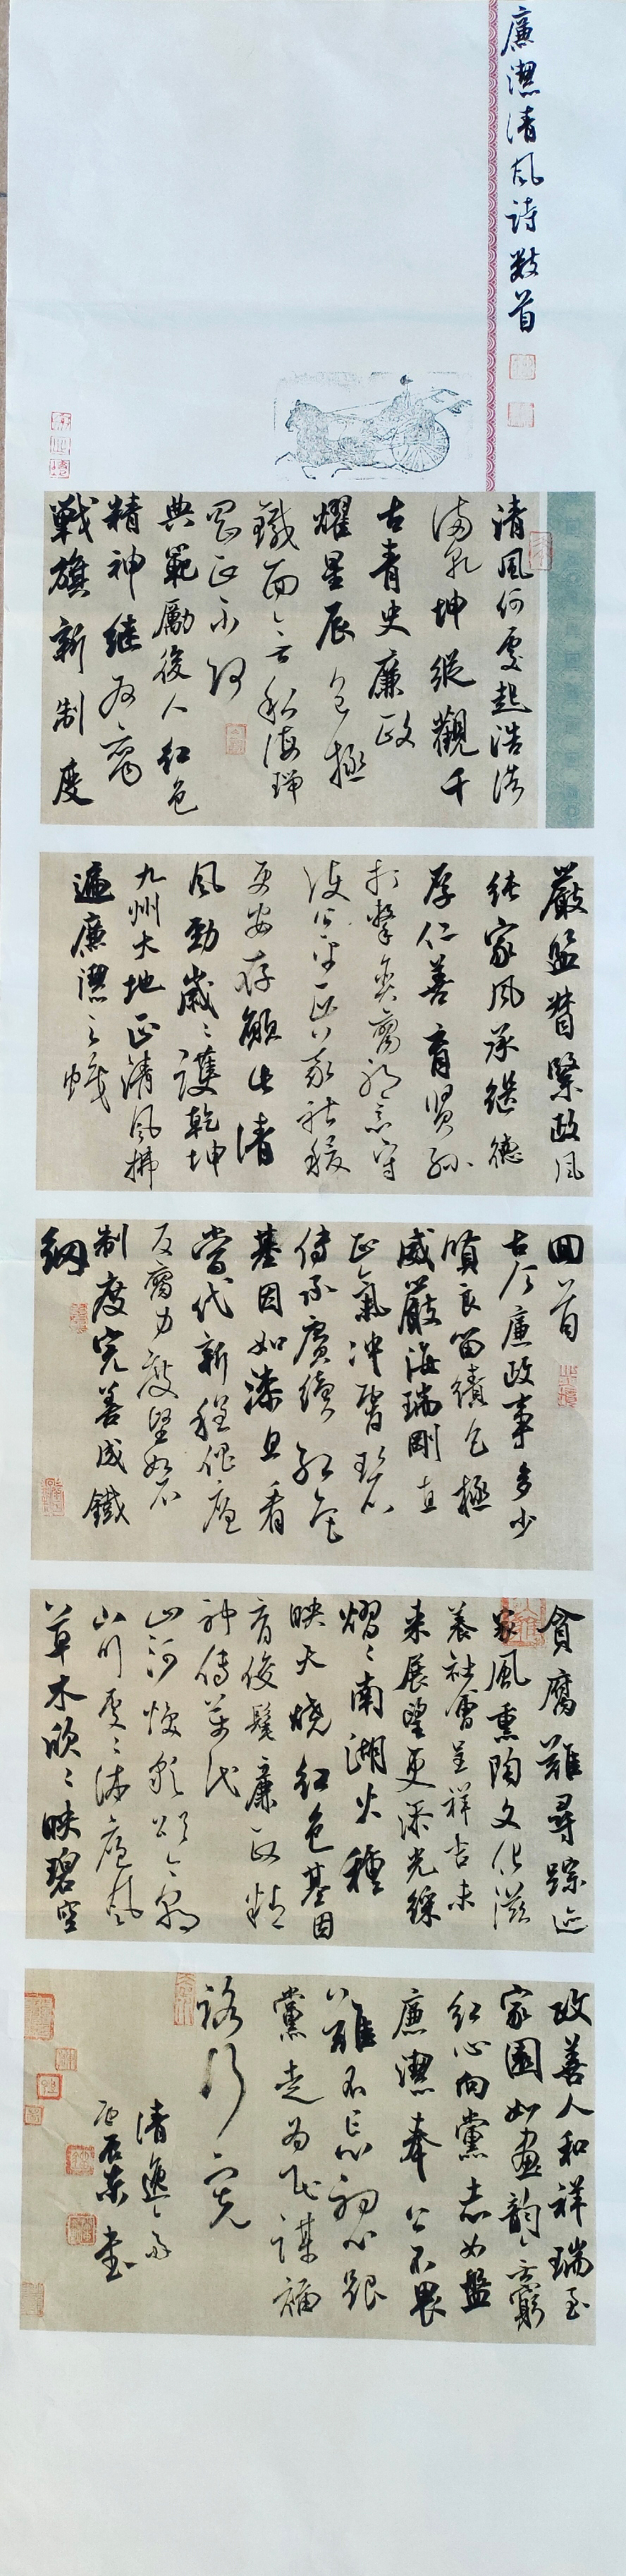 廉潔清風詩數首
清風何處起浩浩
滿乾坤縱觀千
古青史廉政
耀星辰包拯
鐵面無私海瑞
剛正不阿
典範勵後人紅色
精神繼反腐
戰旗新制度
嚴監督緊政風
純家風承繼德
厚仁善育賢孫
打擊貪腐初心守
護公平正義社稷
更安存願此清
風勁歲歲護乾坤
九州大地正清風拂
遍廉潔之
回首
古今廉政事多少
賢良留績包拯
威嚴海瑞剛直
正氣沖
傳承賡續紅色
基因如漆且看
當代新程倡廉
反腐力度堅如石
制度完善成鐵
網
貪腐難尋蹤迹
家風熏陶文化滋
養社會呈祥吉未
來展望更添光綵
熠熠南湖火種
映天燒紅色基因
育俊髦廉政精
神傳萬代
山河煥彩頌今朝
山川處處沐廉風
草木欣欣映碧空
政善人和祥瑞至
家園如畫韻無窮
紅心向黨志如磐
廉潔奉公不畏
難不忘初心跟
黨走為民謀福
路行寬
清逸
書